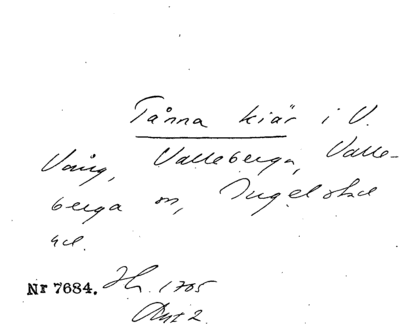 Tånna kiär i V.
Vång, Valleberga, Valle-
berga sn, Ingelstad
hd.
Nr 7684. Jb. 1705
Avs 2.